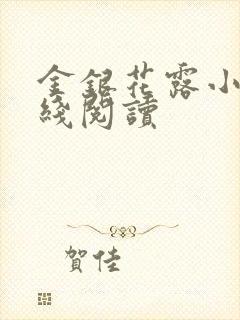 金銀花露小
綫閱讀
賀佳